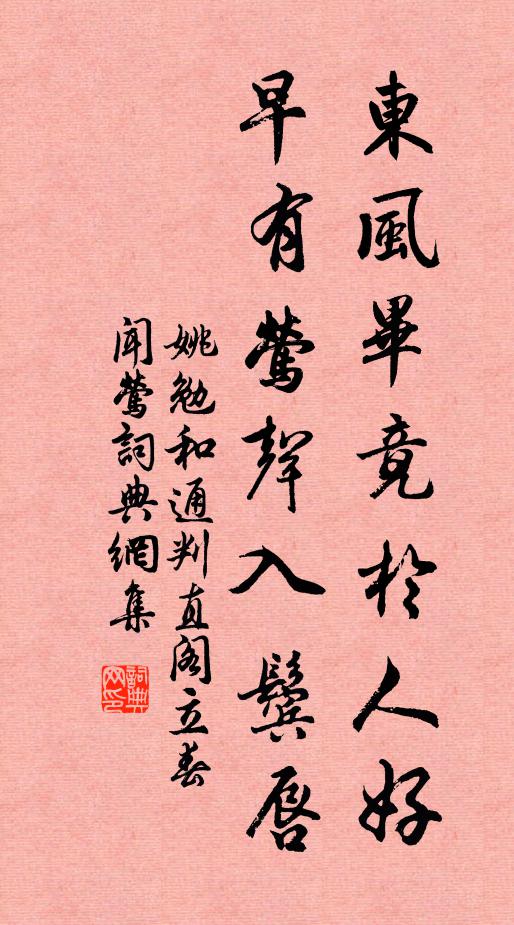 東風畢竟於人好
早有鶯聲入鬢唇
姚勉和通判直閣立春
聞鶯詞典網集
詞典网印